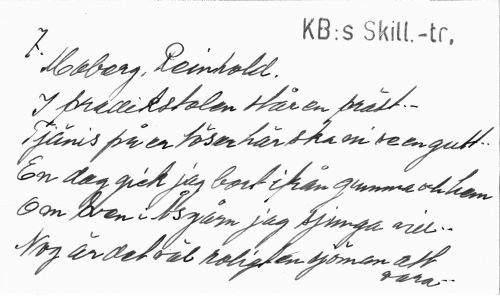 KB:s Skill.-tr.
7.
Moberg, Reinhold.
I predikstolen står en präst--
Tjänis på er töser här ska ni se en gutt--
En dag gick jag bort ifrån gumma och hem
Om Sven i jag sjunga vill--
Nog är det väl roligt en sjöman att
vara--